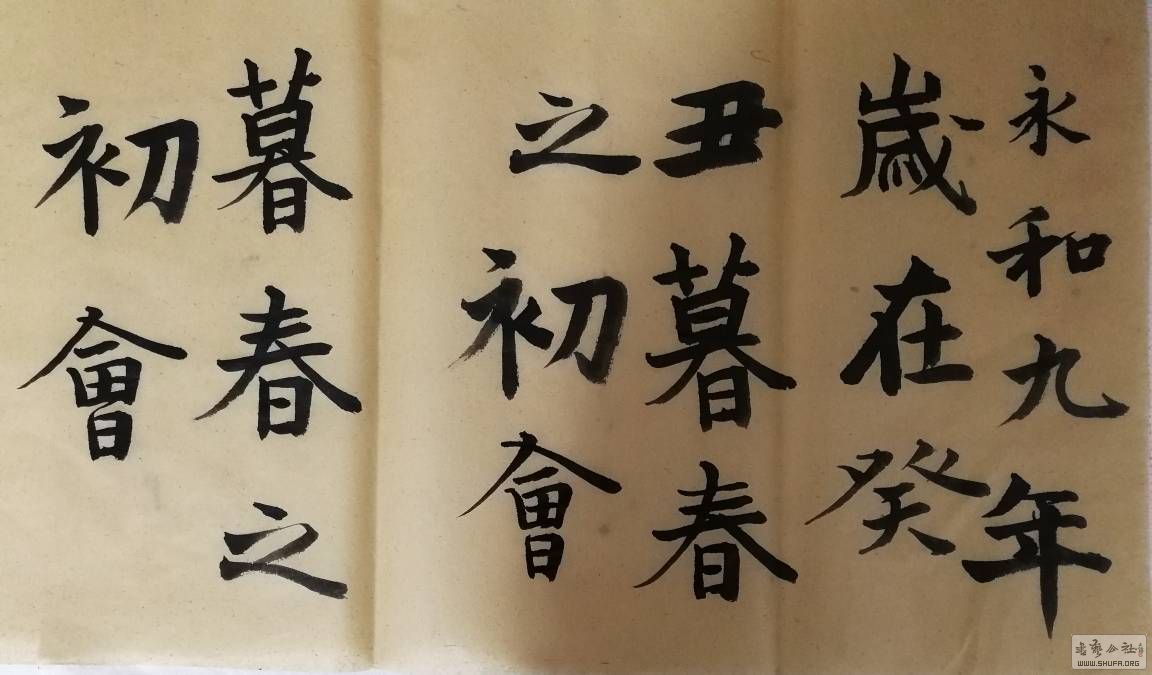 永和九年
歲在癸
丑暮春
之初會
暮春之
初會
書藝公社
WWW.SHUFA.ORG